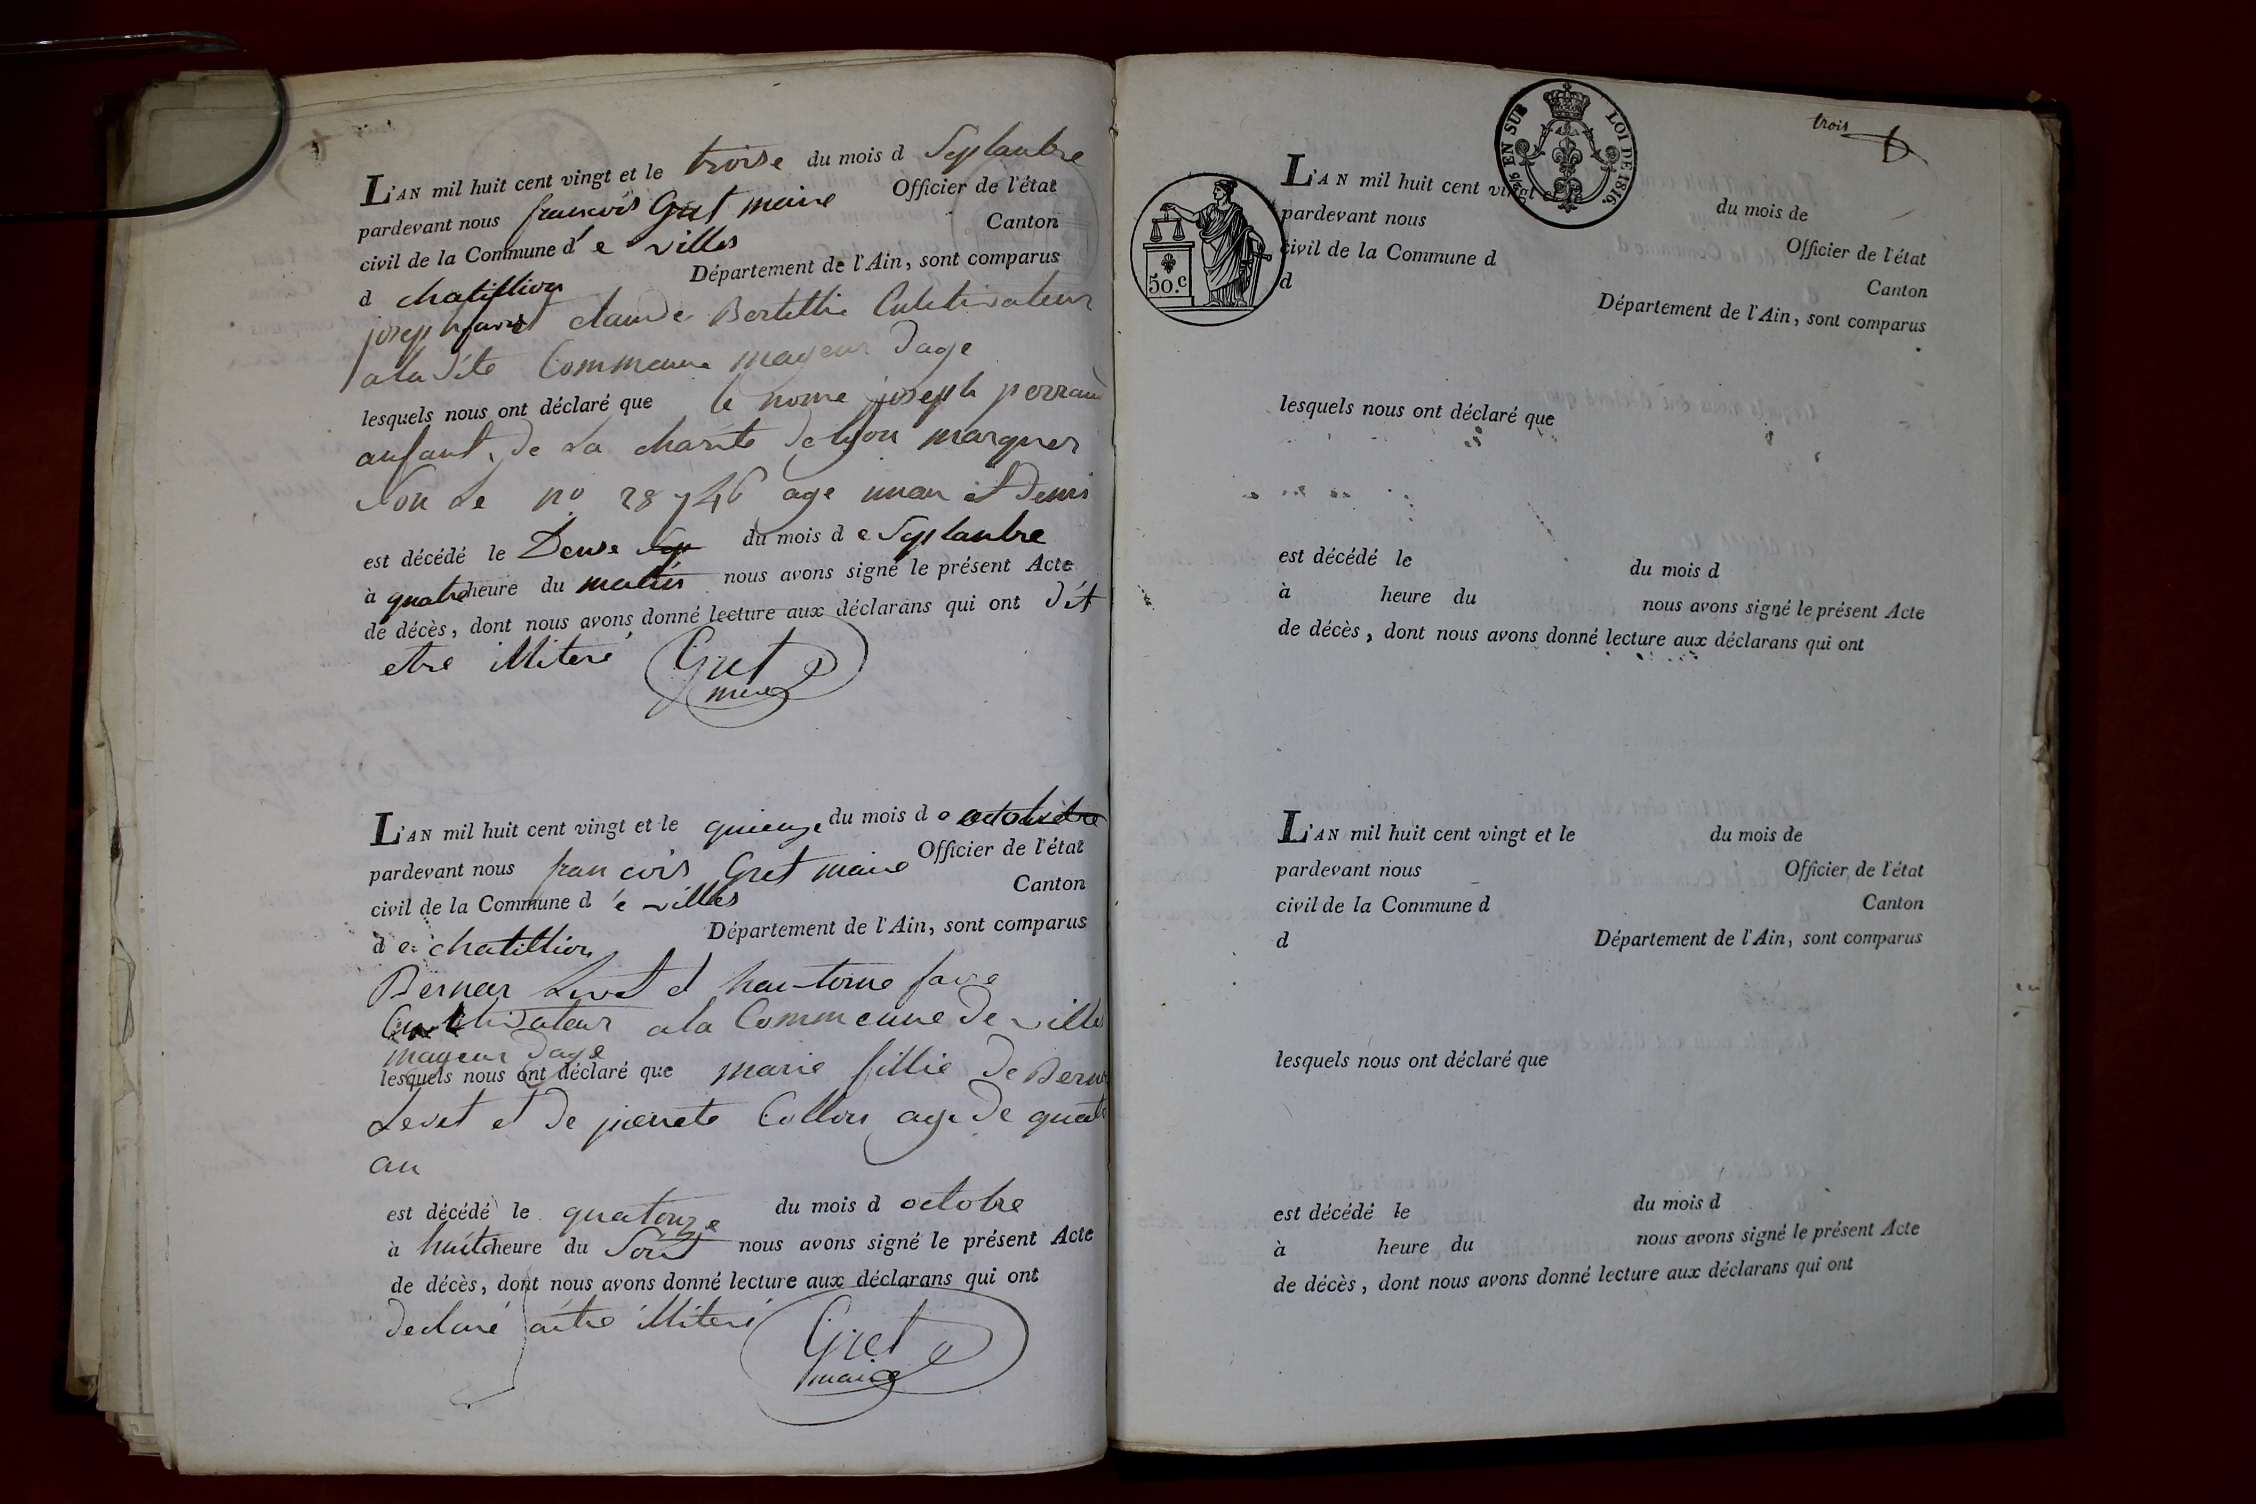 L'AN mil huit cent vingt et le troise du mois d Septanbre
pardevant nous francois Gret maire Officier de l'état
civil de la Commune d'e villes Canton
d chatillion Département de l'Ain, sont comparus
joseph claude Bertellie Cultivateur
a la dite Commeune mageur dage
lesquels nous ont déclaré que le nome joseph perraud
anfant de la charité de lyon marquer
sou le no 28746 age unan et demis
est décédé le Deuse du mois d e Septanbre
à quatre heure du matin nous avons signé le présent Acte
de décès, dont nous avons donné lecture aux déclarans qui ont dit
etre illiteré Gret
maire
L'AN mil huit cent vingt et le quienze du mois d e octobre
pardevant nous francois Gret maire Officier de l'état
civil de la Commune d 'e villes Canton
d e chatillion Département de l'Ain, sont comparus
Bernar Levet et hantoine favre
Cultivateur a la Commeune de villes
mageur dage
lesquels nous ont déclaré que marie fillie de Bernar
Levet et de pierrete Collon age de quatre
an
est décédé le quatorze du mois d octobre
à huit heure du Soir nous avons signé le présent Acte
de décès, dont nous avons donné lecture aux déclarans qui ont
declaré aitre illiteré Gret
maire
EN SUS LOI DE 1816.
trois
50.c
L'AN mil huit cent vingt et le du mois de
pardevant nous Officier de l'état
civil de la Commune d Canton
d Département de l'Ain, sont comparus
lesquels nous ont déclaré que
est décédé le du mois d
à heure du nous avons signé le présent Acte
de décès, dont nous avons donné lecture aux déclarans qui ont
L'AN mil huit cent vingt et le du mois de
pardevant nous Officier de l'état
civil de la Commune d Canton
d Département de l'Ain, sont comparus
lesquels nous ont déclaré que
est décédé le du mois d
à heure du nous avons signé le présent Acte
de décès, dont nous avons donné lecture aux déclarans qui ont